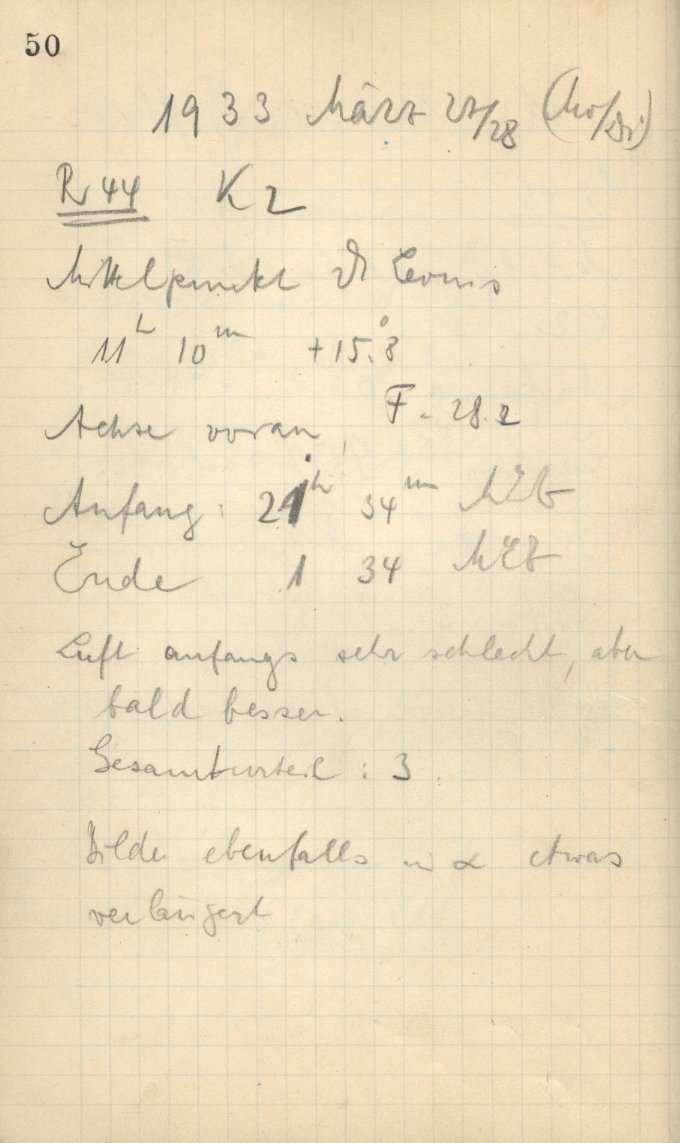 50
1933 März 27/28 (Mo/Di)
R 44 K 2
Mittelpunkt ϑ Leonis
11h 10m +15.°8
Achse voran, F = 28.2
Anfang: 21h 34m MEZ
Ende 1 34 MEZ
Luft anfangs sehr schlecht, aber
bald besser.
Gesamturteil: 3.
Bilder ebenfalls in α etwas
verlängert